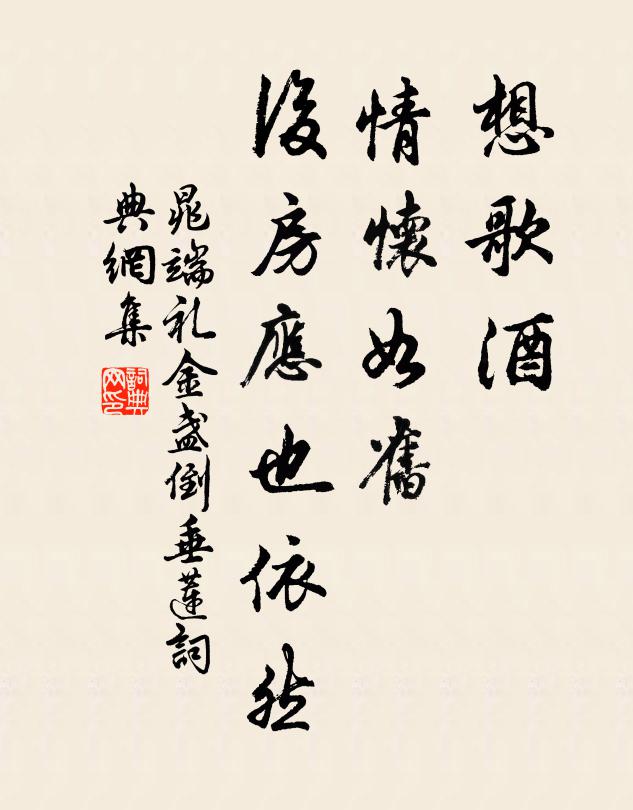 想歌酒
情懷如舊
後房應也依然
晁端礼金盞倒垂蓮詞
典網集
詞典網印